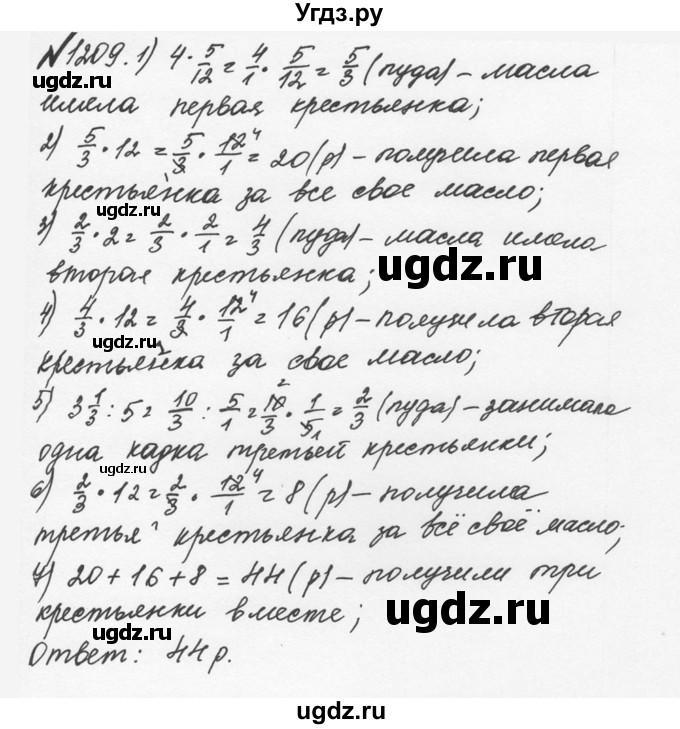 Угдз.ру
№1209. 1) 4 · 5/12 = 4/1 · 5/12 = 5/3 (пуда) – масла
имела первая крестьянка;
2) 5/3 · 12 = 5/3 · 12⁴/1 = 20 (р) – получила первая
крестьянка за все свое масло;
3) 2/3 · 2 = 2/3 · 2/1 = 4/3 (пуда) – масла имела
вторая крестьянка;
4) 4/3 · 12 = 4/3 · 12⁴/1 = 16 (р) – получила вторая
крестьянка за свое масло;
5) 3 1/3 : 5 = 10/3 : 5/1 = 10²/3 · 1/5₁ = 2/3 (пуда) – занимала
одна кадка третьей крестьянки;
6) 2/3 · 12 = 2/3 · 12⁴/1 = 8 (р) – получила
третья крестьянка за всё своё масло;
7) 20 + 16 + 8 = 44 (р) – получили три
крестьянки вместе;
Ответ: 44 р.
ugdz.ru
ugdz.ru
ugdz.ru
ugdz.ru
ugdz.ru
ugdz.ru
ugdz.ru
ugdz.ru
ugdz.ru
ugdz.ru